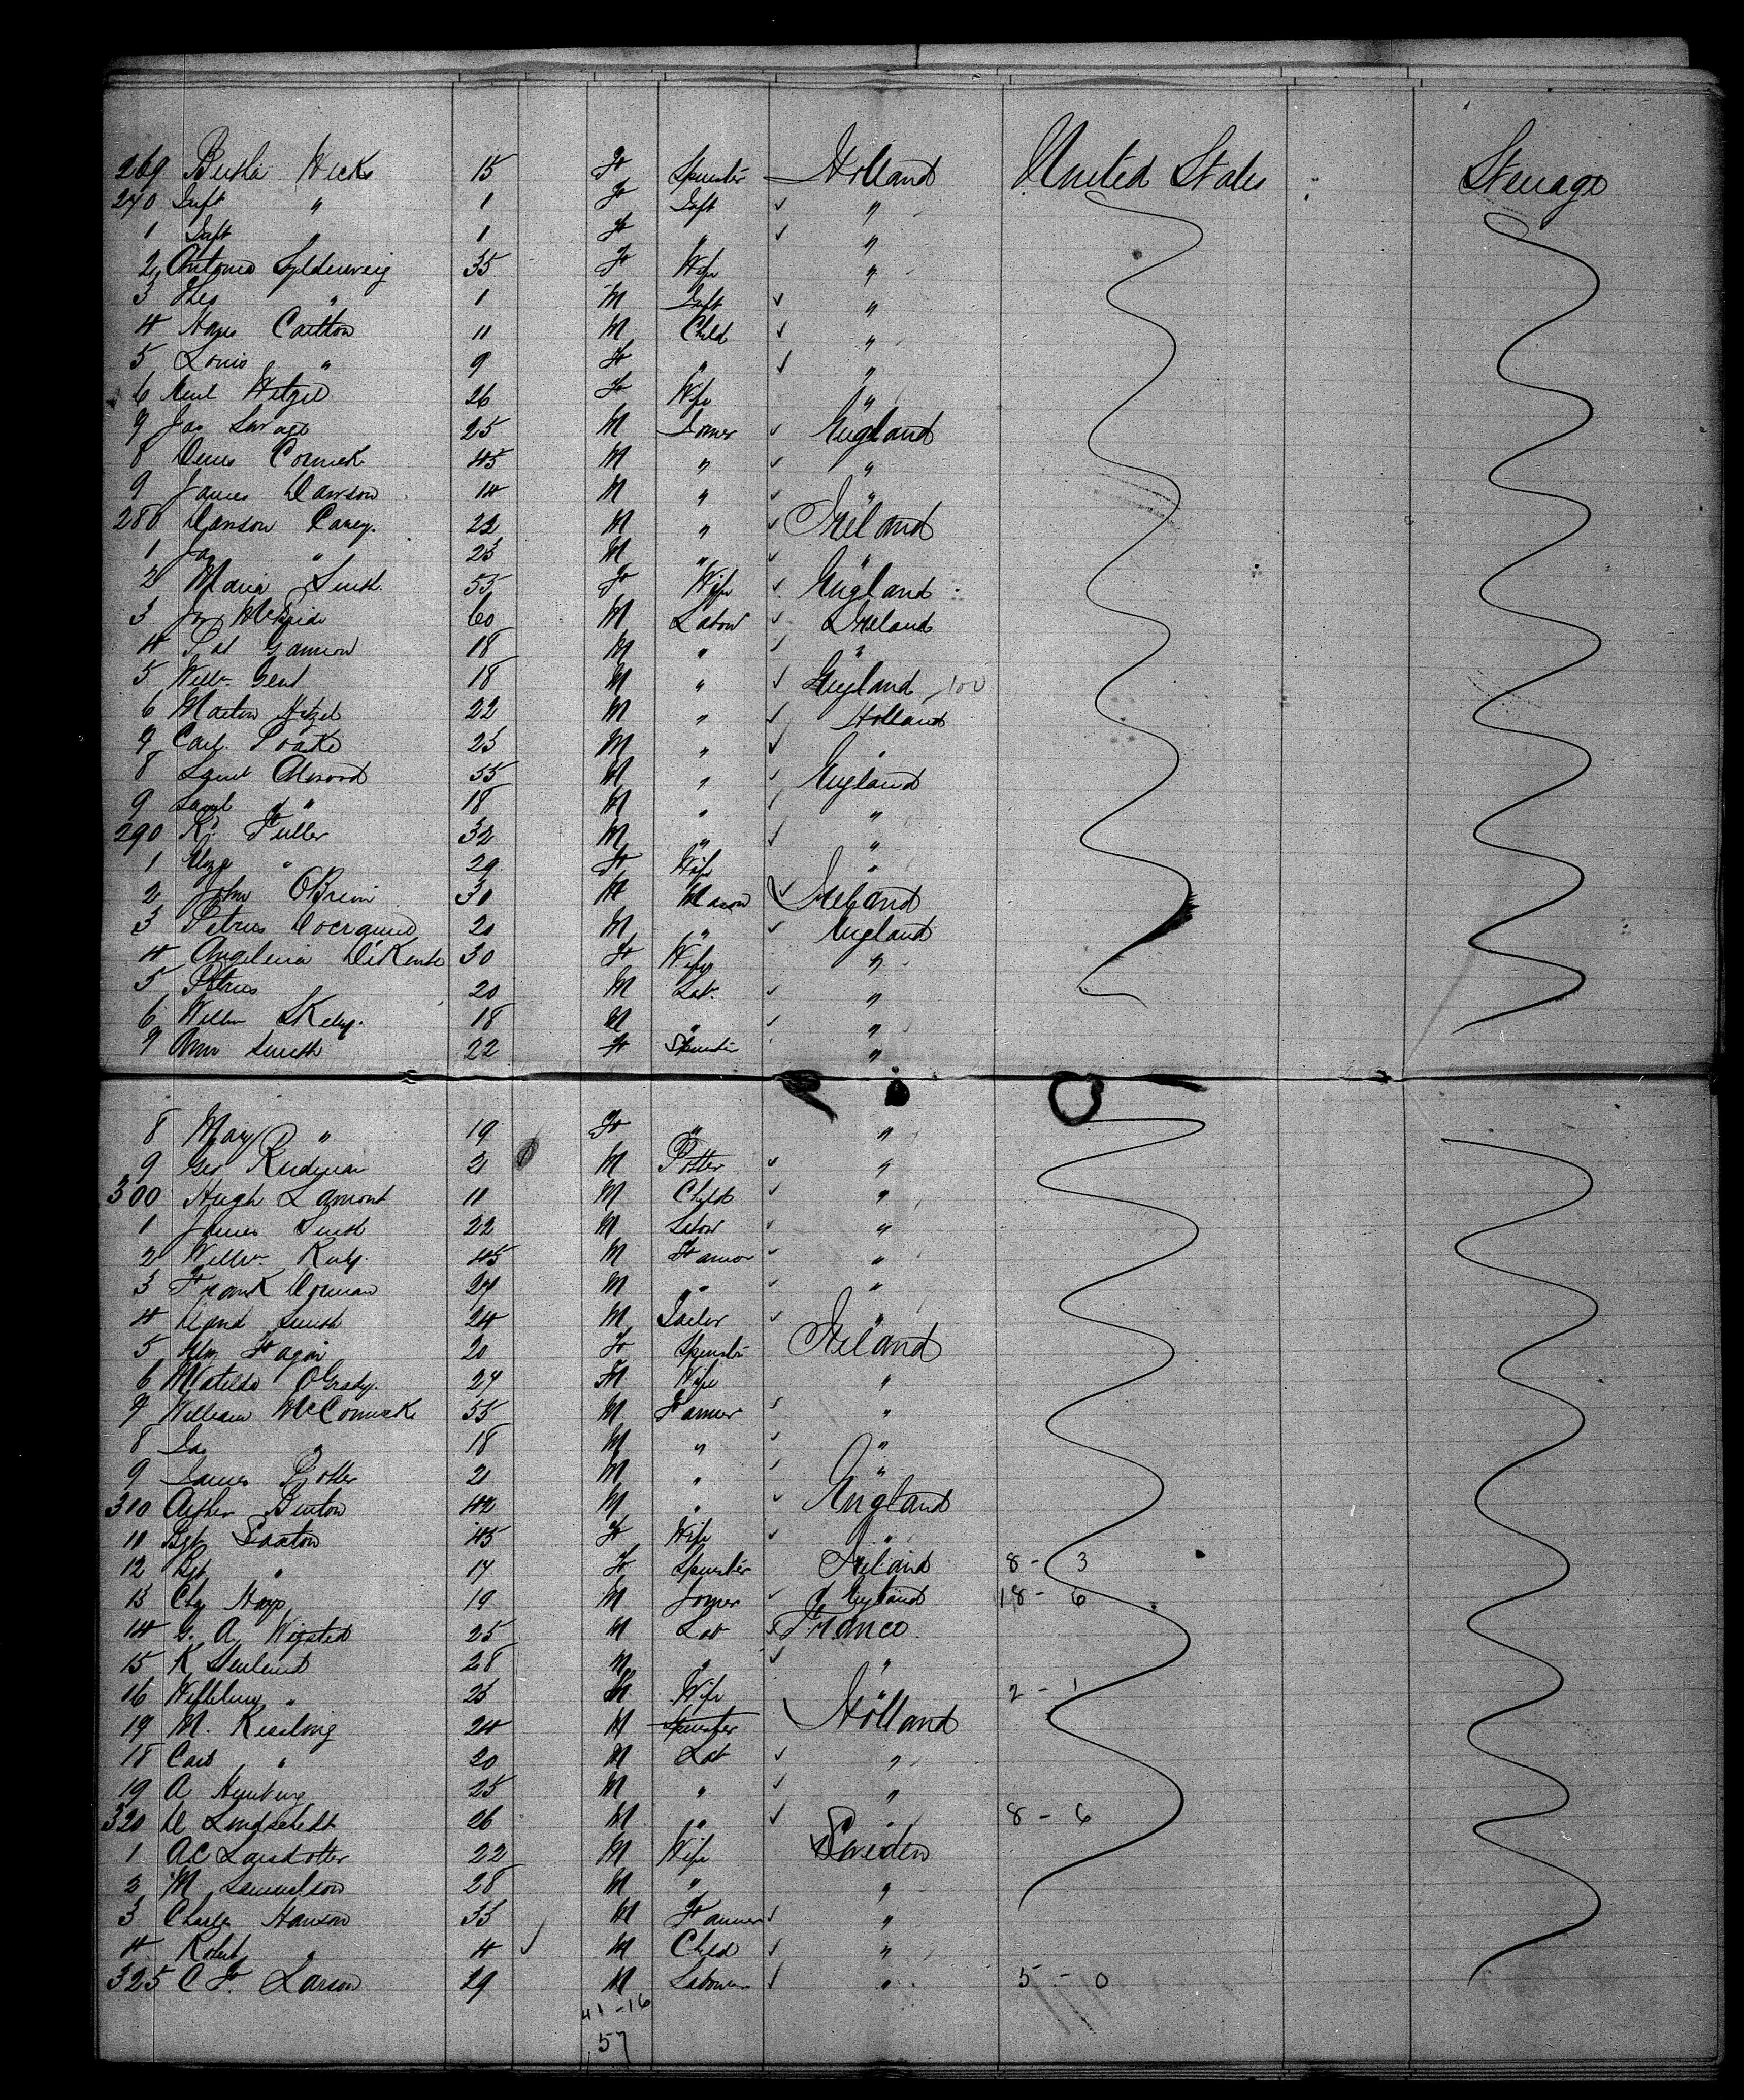 269 Bertha Wicks 15 F Spinster Holland United States Steerage
270 Inft " 1 F Inft ✓ "
1 Inft " 1 F " ✓ "
2 Antonia 35 F Wife "
3 Theo " 1 M Inft ✓ "
4 Carlton 11 M Child ✓ "
5 Louis " 9 F " ✓ "
6 Wetzel 26 F Wife "
7 Jas Savage 25 M Joiner ✓ England
8 Cormick 45 M " ✓ "
9 James Dawson 14 M " ✓ "
280 Dawson Carey 22 M " ✓ Ireland
1 Jas " 25 M " ✓ "
2 Maria Smith 55 F Wife ✓ England
3 Jas McBride 60 M Labour ✓ Ireland
4 Pat Gannon 18 M " ✓ "
5 Willm Gent 18 M " ✓ England
6 Martin Hetzel 22 M " ✓ Holland
7 Carl 25 M " ✓ "
8 Saml 55 M " ✓ England
9 Saml " 18 M " "
290 Rd Fuller 32 M " ✓ "
1 Eliza " 29 F Wife "
2 John OBrien 30 M Mason ✓ Ireland
3 Petrus 20 M " ✓ England
4 Angelina 30 F Wife "
5 Petrus 20 M Lab. ✓ "
6 Willm Skelly 18 M " ✓ "
7 Ann Smith 22 F Spinster "
8 Mary " 19 F " "
9 Geo 21 M Potter ✓ "
300 Hugh Lamont 11 M Child ✓ "
1 James Smith 22 M Labour ✓ "
2 Willm 45 M Farmer ✓ "
3 Frank Dorman 27 M " ✓ "
4 David Smith 24 M Tailor ✓ "
5 Eliz Fagan 20 F Spinster Ireland
6 Matilda OGrady 27 Wife "
7 William McCormick 55 M Farmer ✓ "
8 Jas " 18 M " ✓ "
9 James Potter 21 M " ✓ "
310 Arthur Burton 42 M " ✓ England
11 Bgt Saxton 45 F Wife ✓ "
12 Bgt " 17 F Spinster Ireland 8 - 3
13 Chs Hays 19 M Joiner ✓ England 18 - 6
14 G. A. Wigsted 25 M Lab France
15 K 28 M " ✓ "
16 " 25 Wife " 2 - 1
17 M. Kissling 24 M Spinster Holland
18 Carl " 20 M Lab ✓ "
19 A 25 M " ✓ "
320 26 M " ✓ " 8 - 6
1 A C Larsdotter 22 M Wife Sweden
2 M Samuelson 28 M " "
3 Charles Hanson 35 M Farmer ✓ "
4 Robert " 4 ✓ M Child ✓ "
325 C F. Larson 29 M Labourer ✓ " 5 - 0
41 - 16
57